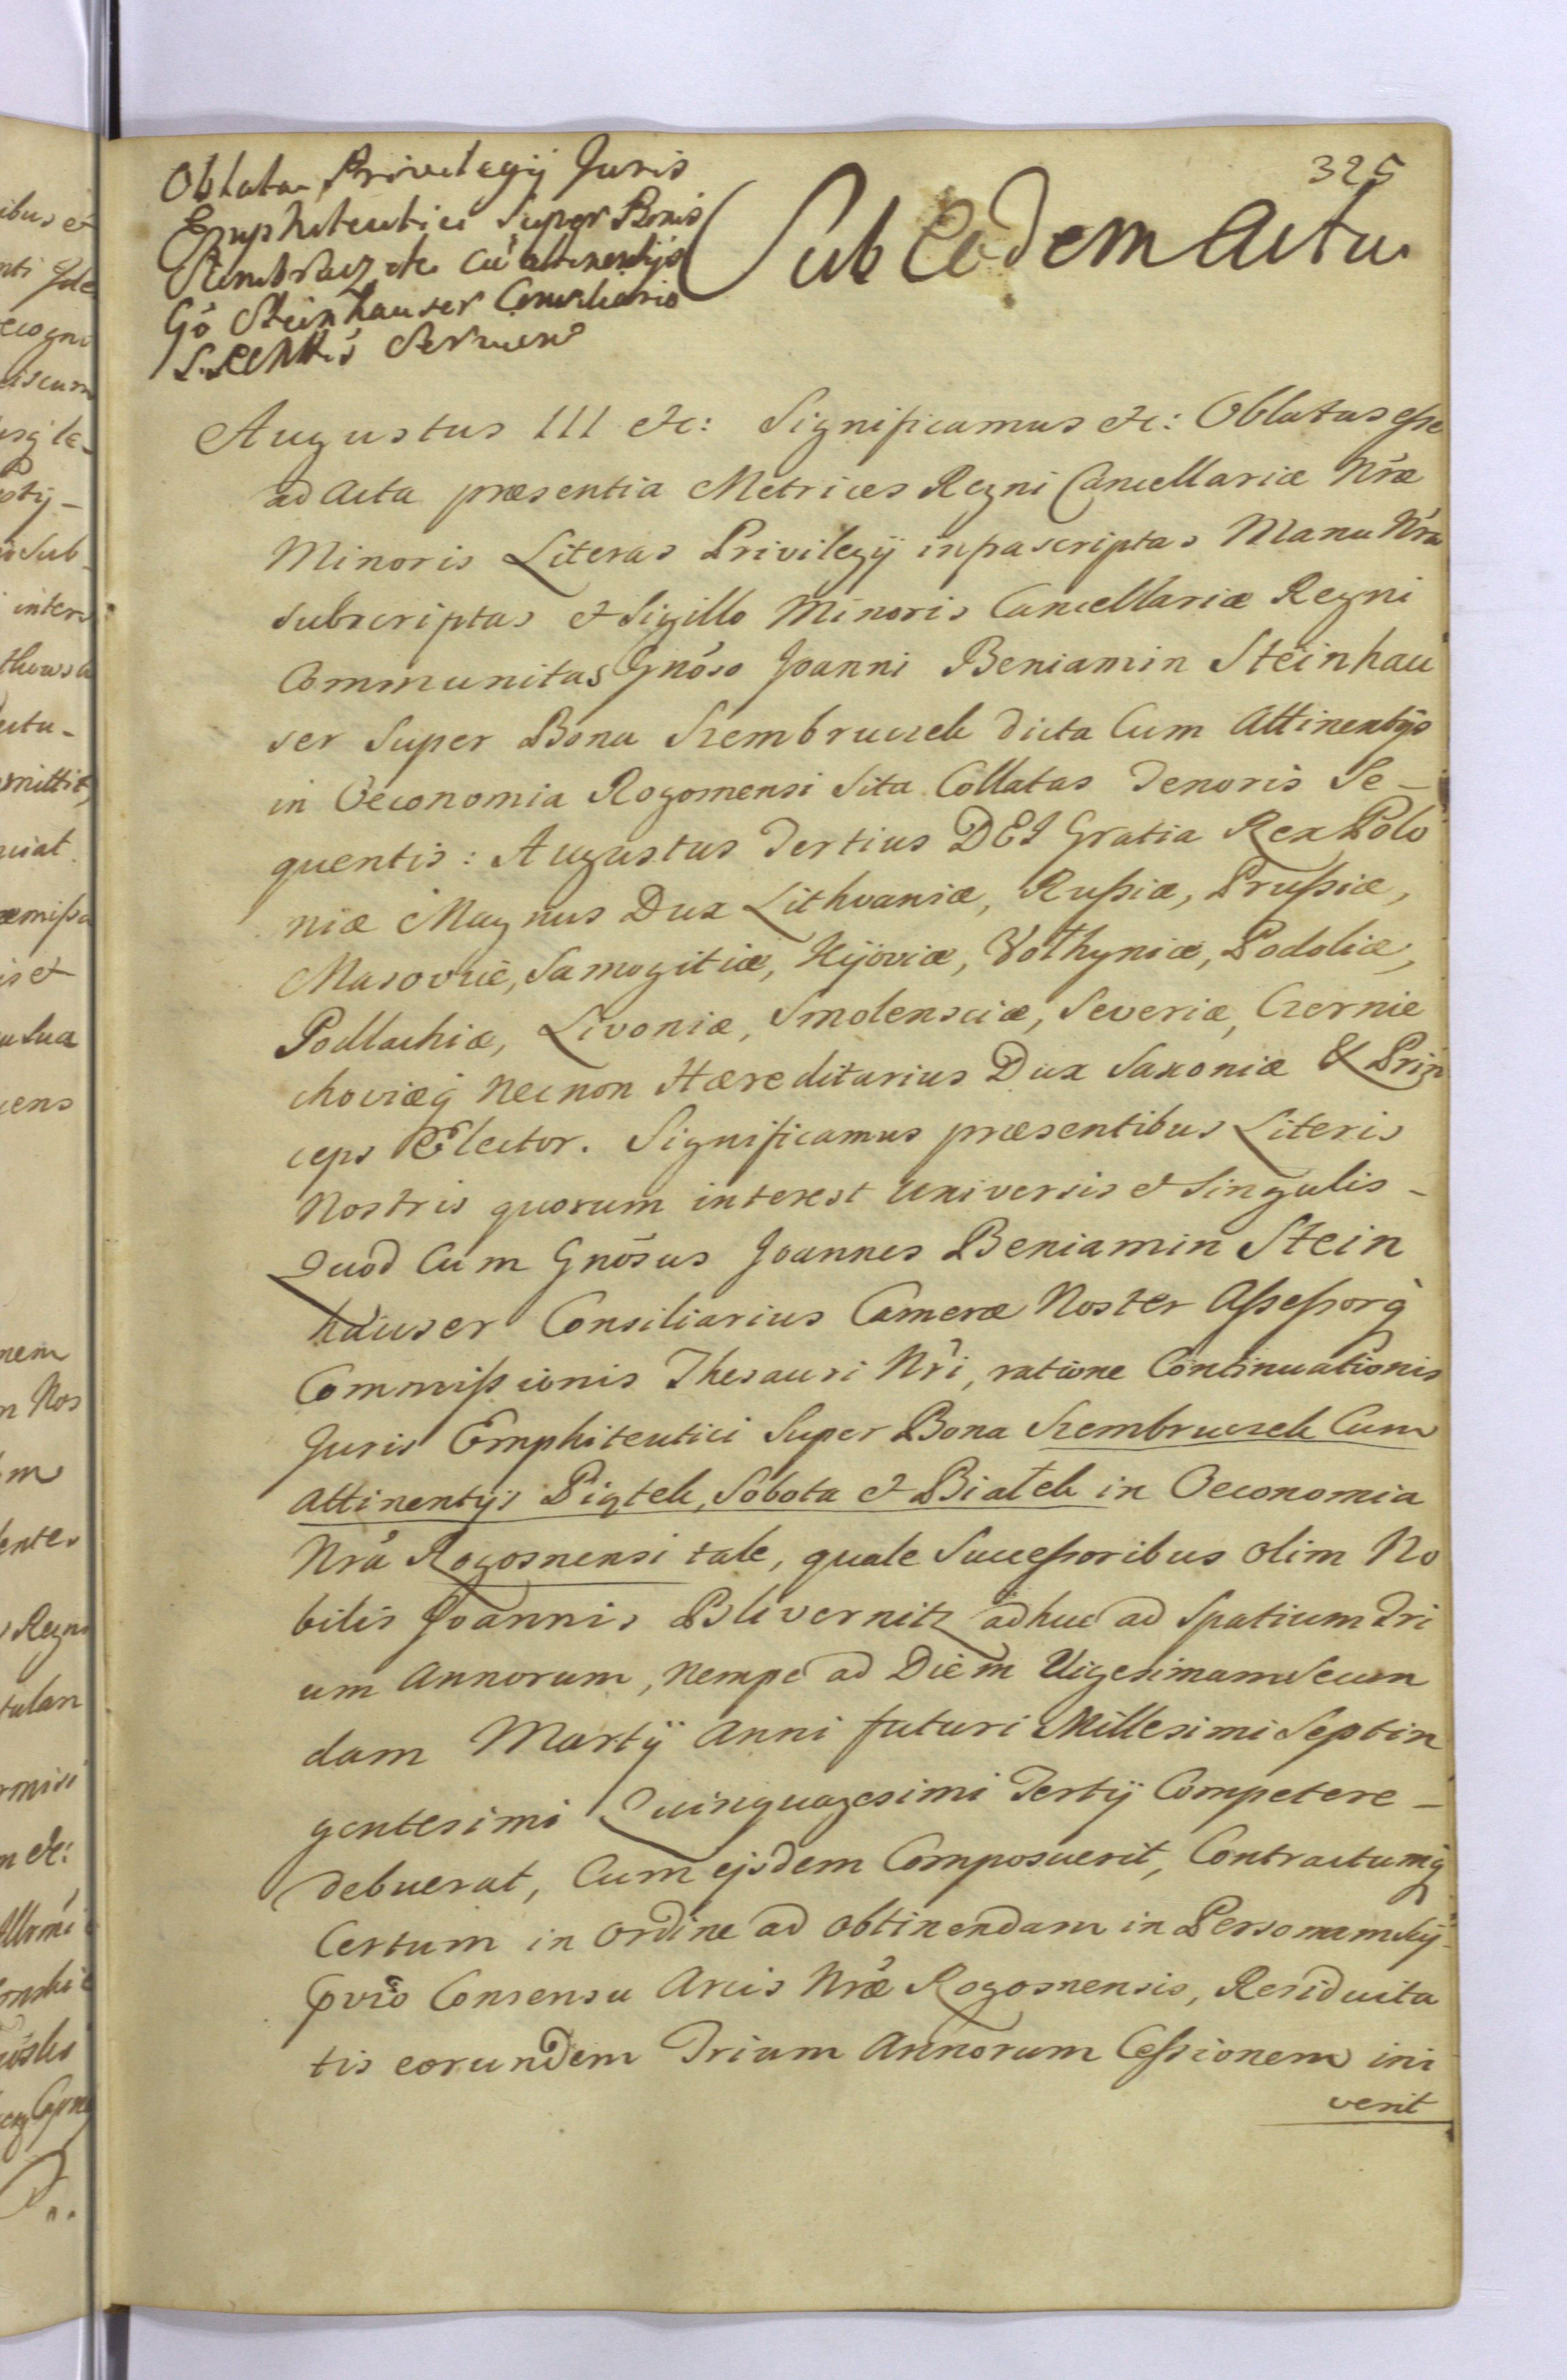 325
Oblata Privilegij Juris
Emphiteutici Super Bonis
Szembruczek cũ attinentijs
Gő Steinhauser Consiliario
S. R. Mttis Servien̄
Sub Eodem Actu
Augustus III etc: Significamus etc: Oblatas esse
ad Acta præsentia Metrices Regni Cancellariæ Nr̃æ
Minoris Literas Privilegij infrascriptas Manu Nr̃a
subscriptas et Sigillo Minoris Cancellariæ Regni
Communitas Gnõso Joanni Beniamin Steinhau
ser Super Bona Szembruczek dicta Cum Attinentijs
in Oeconomia Rogornensi Sita Collatas Tenoris Se-
quentis: Augustus Tertius DEI Gratia Rex Polo
niæ Magnus Dux Lithvaniæ, Rußiæ, Prußiæ,
Masoviæ, Samogitiæ, Kijoviæ, Volhyniæ, Podoliæ,
Podlachiæ, Livoniæ, Smolensciæ, Severiæ, Czernie
choviæq̃ Necnon Hæreditarius Dux Saxoniæ & Prin
ceps Elector. Significamus præsentibus Literis
Nostris quorum interest Universis et Singulis -
Quod Cum Gnõsus Joannes Beniamin Stein
hauser Consiliarius Cameræ Noster Aßeßorq̃
Commißionis Thesauri Nr̃i, ratione Continuationis
Juris Emphiteutici Super Bona Szembruczek Cum
Attinentijs Piątek, Sobota et Białek in Oeconomia
Nrã Rogosnensi tale, quale Succeßoribus olim No
bilis Joannis Blivernitz adhuc ad Spatium Tri
um Annorum, Nempe ad Diem Vigesimam Secun
dam Martij Anni futuri Millesimi Septin
gentesimi Quinquagesimi Tertij Competere -
debuerat, Cum ejsdem Composuerit, Contractumq̃
Certum in Ordine ad obtinendam in Personam
prṽio Consensu Arcis Nr̃æ Rogosnensis, Residuita
tis eorundem Trium Annorum Ceßionem ini
verit